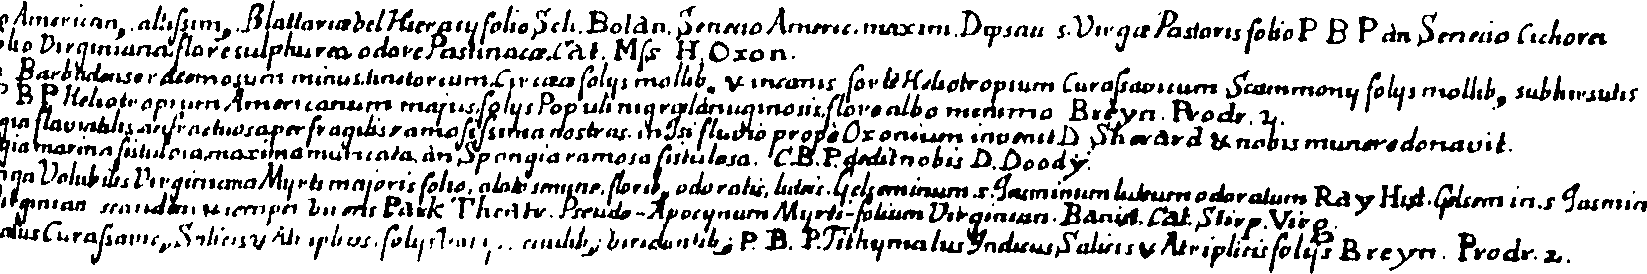 American. altissim, Blattariæ vel Hieracij folio Sch. Botan. Senecio Americ. maxim. Dipsaci s. Virgæ Pastoris folio P B P àn Senecio Cichorei
folio Virginiana flore sulphureo odore Pastinacæ. Cat. Mſs H. Oxon.
Barbadense racemosum minus tinctorium. Circææ folijs mollib. & incanis forte Heliotropium Curaſsavicum Scammony folijs mollib, subhirsutis
P B P Heliotropium Americanum majus. folijs Populi nigræ lanuginosis. flore albo minimo Breyn. Prodr. 2.
fluviatilis anfractuosa perfragilis ramosiſsima nostras. in Isi fluvio propè Oxonium invenit D Sherard & nobis munere donavit.
marina fistulosa maxima muricata àn Spongia ramosa fistulosa. C. B. P. dedit nobis D. Doody.
Volubilis Virginiana Myrti majoris folio, alato semine. florib, odoratis, luteis. Gelseminum s. Jasminum luteum odoratum Ray Hist. Gelsemin. s Jasmin
Virginian scanden & semper virens Park Theatr. Pseudo-Apocynum Myrti-folium Virginian. Banist. Cat. Stirp. Virg.
Curaſsavic, Salicis & Atriplicis folijs viridantib; P. B. P. Tithymalus Indicus Salicis & Atriplicis folijs Breyn. Prodr. 2.